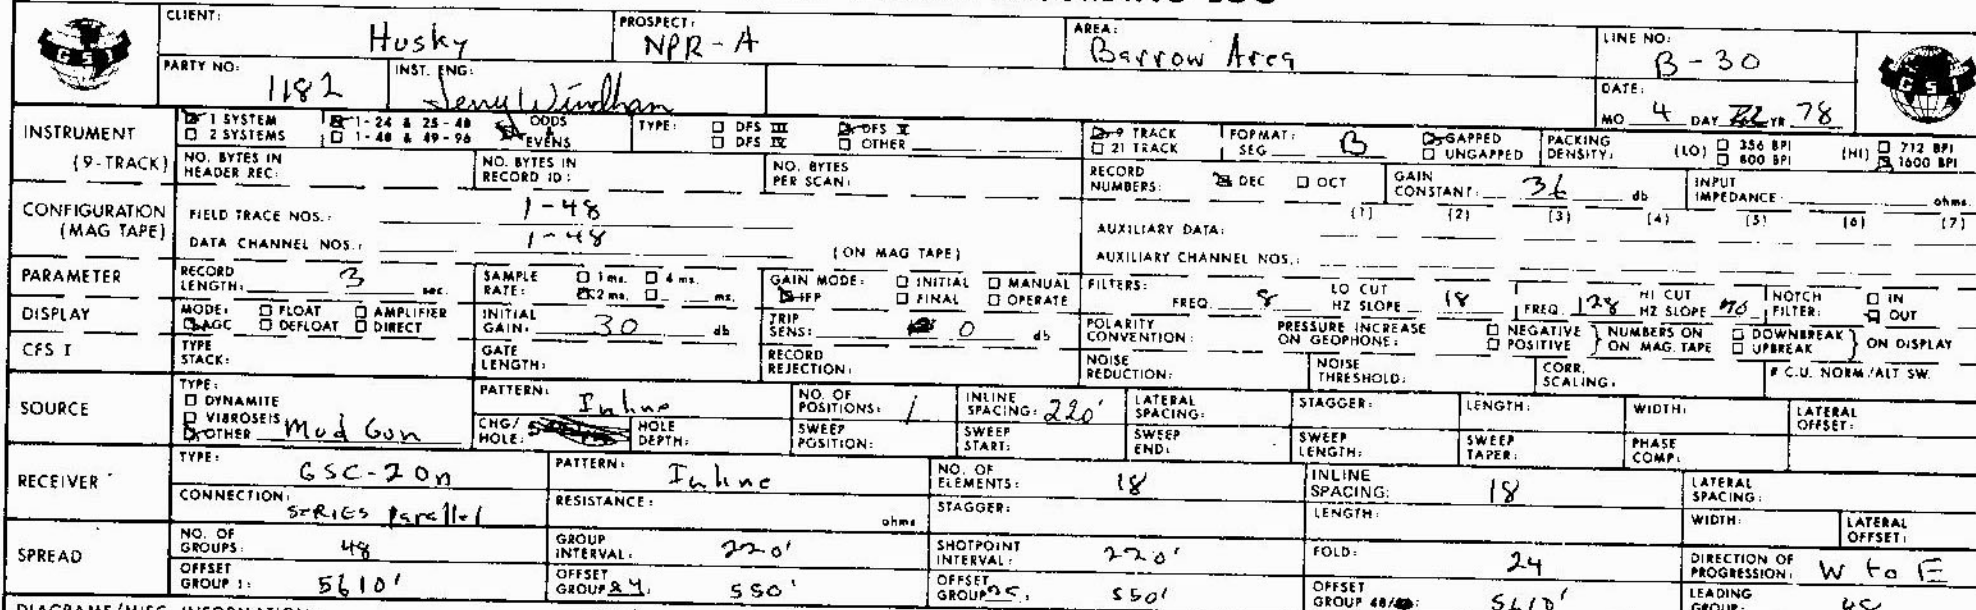 CLIENT: Husky PROSPECT: NPR-A AREA: Barrow Area LINE NO: B-30
GSI GSI
PARTY NO: 1182 INST. ENG: Jerry Windham DATE:
MO 4 DAY YR 78
INSTRUMENT 1 SYSTEM 1-24 & 25-48 ODDS & EVENS TYPE: DFS III DFS V 9 TRACK FORMAT: SEG B GAPPED PACKING DENSITY: (LO) 356 BPI (HI) 712 BPI
2 SYSTEMS 1-48 & 49-96 DFS IV OTHER 21 TRACK UNGAPPED 800 BPI 1600 BPI
(9-TRACK) NO. BYTES IN HEADER REC: NO. BYTES IN RECORD ID: NO. BYTES PER SCAN: RECORD NUMBERS: DEC OCT GAIN CONSTANT: 36 db INPUT IMPEDANCE: ohms.
CONFIGURATION (MAG TAPE) FIELD TRACE NOS.: 1-48 AUXILIARY DATA: (1) (2) (3) (4) (5) (6) (7)
DATA CHANNEL NOS.: 1-48 (ON MAG TAPE) AUXILIARY CHANNEL NOS.:
PARAMETER RECORD LENGTH: 3 sec. SAMPLE RATE: 1 ms. 4 ms. 2 ms. ms. GAIN MODE: INITIAL MANUAL IFP FINAL OPERATE FILTERS: FREQ. 8 LO CUT HZ SLOPE 18 FREQ. 128 HI CUT HZ SLOPE 70 NOTCH FILTER: IN OUT
DISPLAY MODE: FLOAT AMPLIFIER AGC DEFLOAT DIRECT INITIAL GAIN: 30 db TRIP SENS: 0 db POLARITY CONVENTION: PRESSURE INCREASE ON GEOPHONE: NEGATIVE POSITIVE NUMBERS ON ON MAG. TAPE DOWNBREAK UPBREAK ON DISPLAY
CFS I TYPE STACK: GATE LENGTH: RECORD REJECTION: NOISE REDUCTION: NOISE THRESHOLD: CORR. SCALING: # C.U. NORM/ALT SW.
SOURCE TYPE: DYNAMITE VIBROSEIS OTHER Mud Gun PATTERN: Inline NO. OF POSITIONS: 1 INLINE SPACING: 220' LATERAL SPACING: STAGGER: LENGTH: WIDTH: LATERAL OFFSET:
CHG/HOLE: HOLE DEPTH: SWEEP POSITION: SWEEP START: SWEEP END: SWEEP LENGTH: SWEEP TAPER: PHASE COMP:
RECEIVER TYPE: GSC-20D PATTERN: Inline NO. OF ELEMENTS: 18 INLINE SPACING: 18 LATERAL SPACING:
CONNECTION: SERIES Parallel RESISTANCE: ohms STAGGER: LENGTH: WIDTH: LATERAL OFFSET:
SPREAD NO. OF GROUPS: 48 GROUP INTERVAL: 220' SHOTPOINT INTERVAL: 220' FOLD: 24 DIRECTION OF PROGRESSION: W to E
OFFSET GROUP 1: 5610' OFFSET GROUP 24: 550' OFFSET GROUP 25: 550' OFFSET GROUP 48/ 5610' LEADING GROUP: